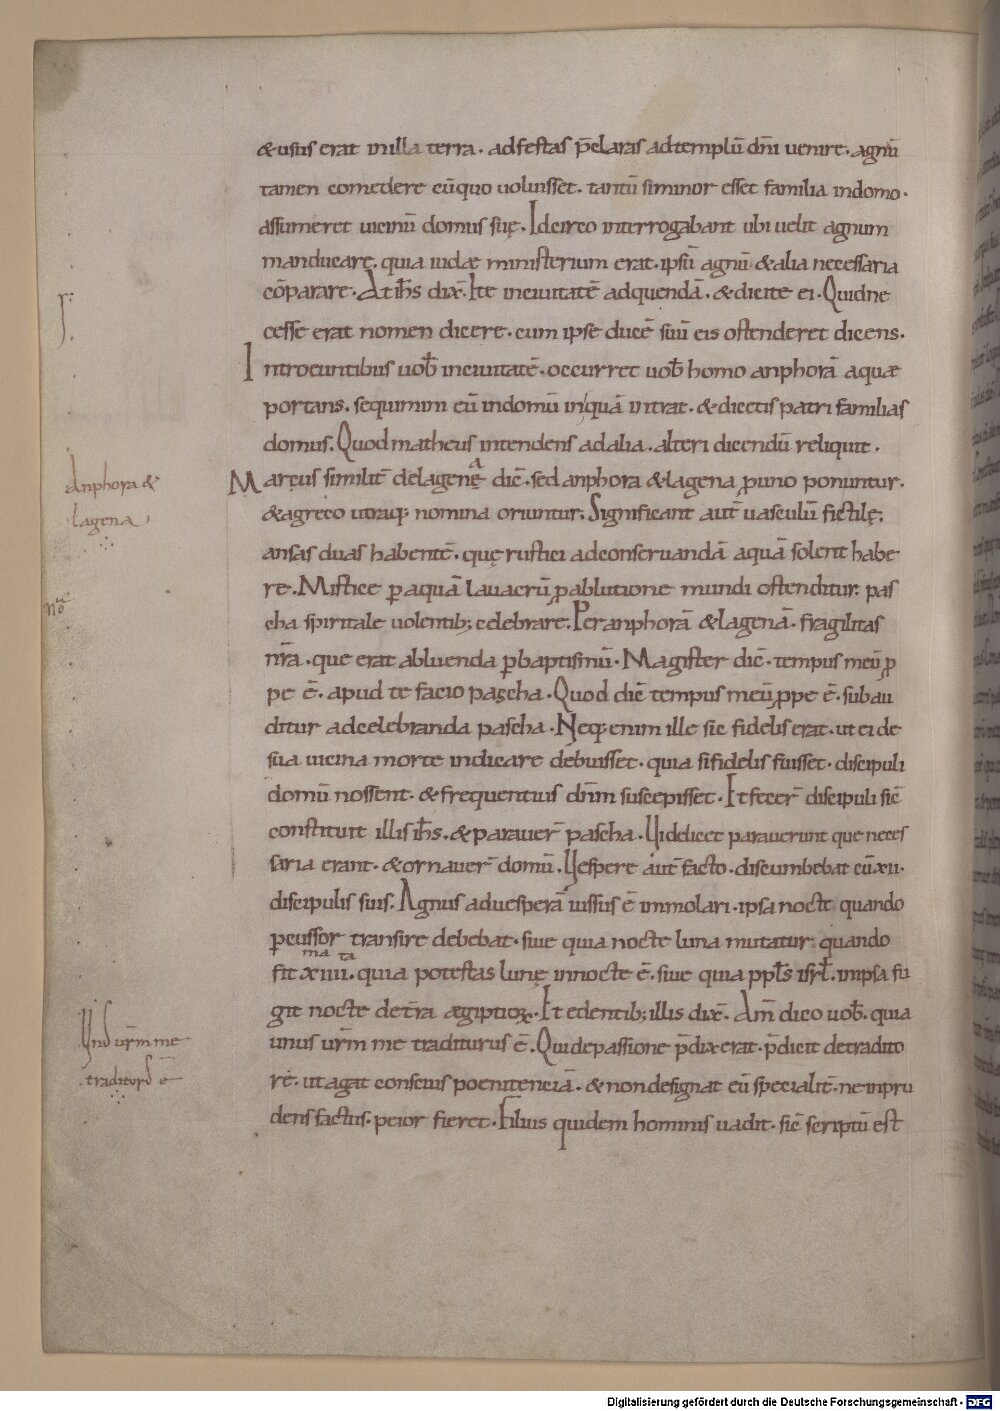 &usus erat in illa terra. ad festas p̄claras ad templū dn̄i uenire. agnū
tamen comedere cū quo uoluisset. tantū si minor esset familia in domo.
assumeret uicinū domus suę. Idcirco interrogabant ubi uelit agnum
manducare. quia iudæ ministerium erat. ipsū agnū & alia necessaria
cōparare. At ih̄s dix̄. Ite in ciuitatē ad quendā. & dicite ei. Quid ne
cesse erat nomen dicere. cum ipse ducē suū eis ostenderet dicens.
Introeuntibus uob̄ in ciuitatē. occurret uob̄ homo anphorā aquæ
portans. sequimini eū in domū in quā intrat. & dicetis patri familias
domus. Quod matheus intendens ad alia. alteri dicendū reliquit.
Anphora &
lagena
Marcus similit̄ de lagenę a dic̄. sed anphora & lagena ꝓ uno ponuntur.
& a greco utraq; nomina oriuntur. Significant aut̄ uasculū fictilę;
ansas duas habentē. quę rustici ad conseruandā aquā solent habe
re. Mistice ꝑ aquā lauacrū ꝓ ablutione mundi ostenditur. pas
cha spiritale uolentib; celebrare. Per anphorā & lagenā. fragilitas
nr̄a. que erat abluenda ꝑ baptismū. Magister dic̄. tempus meū ꝓ
pe ē. apud te facio pascha. Quod dic̄ tempus meū ꝓpe ē. subau
ditur ad celebranda pascha. Neq; enim ille sic fidelis erat. ut ei de
sua uicina morte indicare debuisset. quia si fidelis fuisset. discipuli
domū nossent. & frequentius dn̄m suscepisset. Et fecer̄ discipuli sic̄
constituit illis ih̄s. & parauer̄ pascha. Uidelicet parauerunt que neces
saria erant. & ornauer̄ domū. Uespere aut̄ facto. discumbebat cū xii.
discipulis suis. Agnus ad uesperā iussus ē immolari. ipsa nocte quando
ꝑcussor transire debebat. siue quia nocte luna mutatur. quando
ma ta
fit xiiii. quia potestas lunę in nocte ē. siue quia ppl̄s isrl̄. in ipsa fu
git nocte de t̄ra ægiptioꝝ. Et edentib; illis dix̄. Am̄ dico uob̄. quia
Unus ur̄m me
traditurus ē
unus ur̄m me traditurus ē. Qui de passione p̄dixerat. p̄dicit de tradito
re. ut agat conscius poenitenciā. & non designat eū specialit̄. ne inpru
dens factus. peior fieret. Filius quidem hominis uadit. sic̄ scriptū est
Digitalisierung gefördert durch die Deutsche Forschungsgemeinschaft - DFG